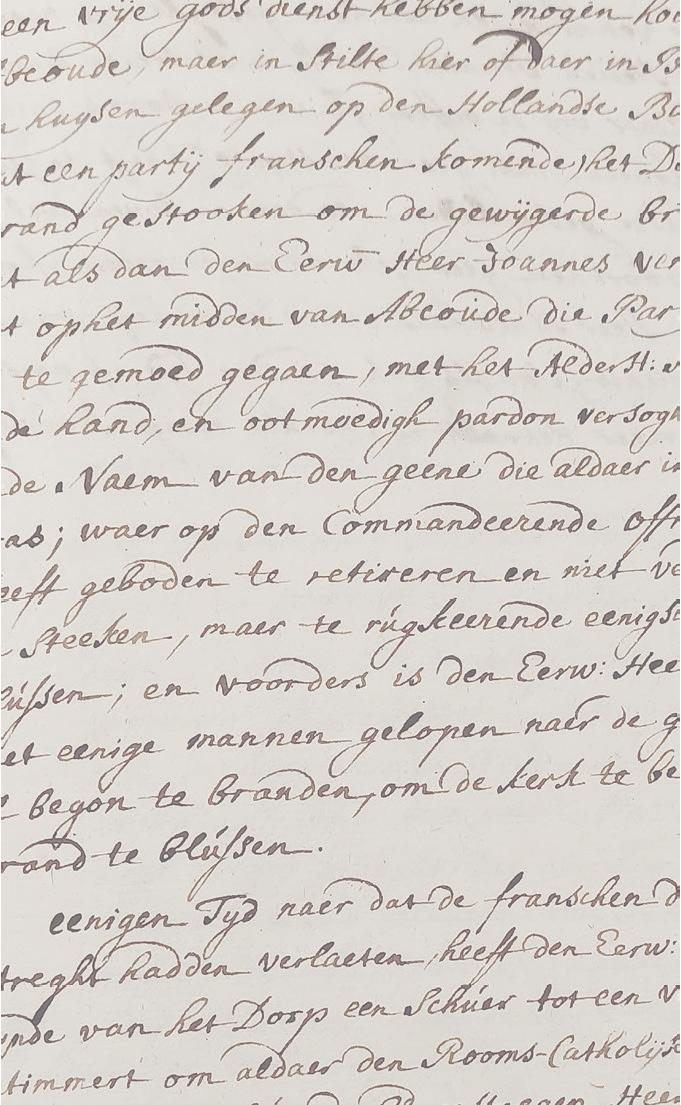 een vrije gods dienst hebben mogen
beoude, maer in Stilte hier of daer in
huysen gelegen op den Hollandse
at een partij franschen komende, het
rand gestooken om de gewijgerde br
t als dan den Eerw Heer Joannes ver
t ophet midden van Abcoude die Par
te gemoed gegaen, met het Alderh:
de hand, en ootmoedigh pardon versogt
de Naem van den geene die aldaer in
as; waer op den Commandeerende offi
eeft geboden te retireren en niet ve
Steeken, maer te rúgkeerende eenigst
lússen; en voorders is den Eerw: Hee
et eenige mannen gelopen naer de g
begon te branden, om de kerk te be
rand te blússen.
eenigen Tyd naer dat de franschen d
treght hadden verlaeten, heeft den Eerw:
ynde van het Dorp een Schúer tot een v
timmert om aldaer den Rooms-Catholijk
Heer